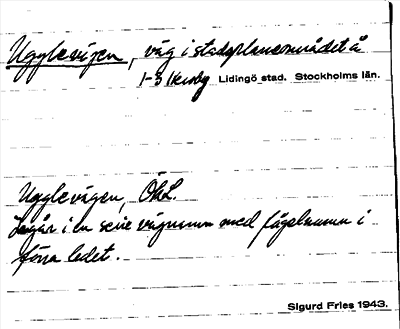 Ugglevägen, väg i stadsplaneområdet å
1-3 Lidingö stad. Stockholms län.
Ugglevägen, ÖhL.
Ingår i en serie vägnamn med fågelnamn i
förra ledet.
Sigurd Fries 1943.